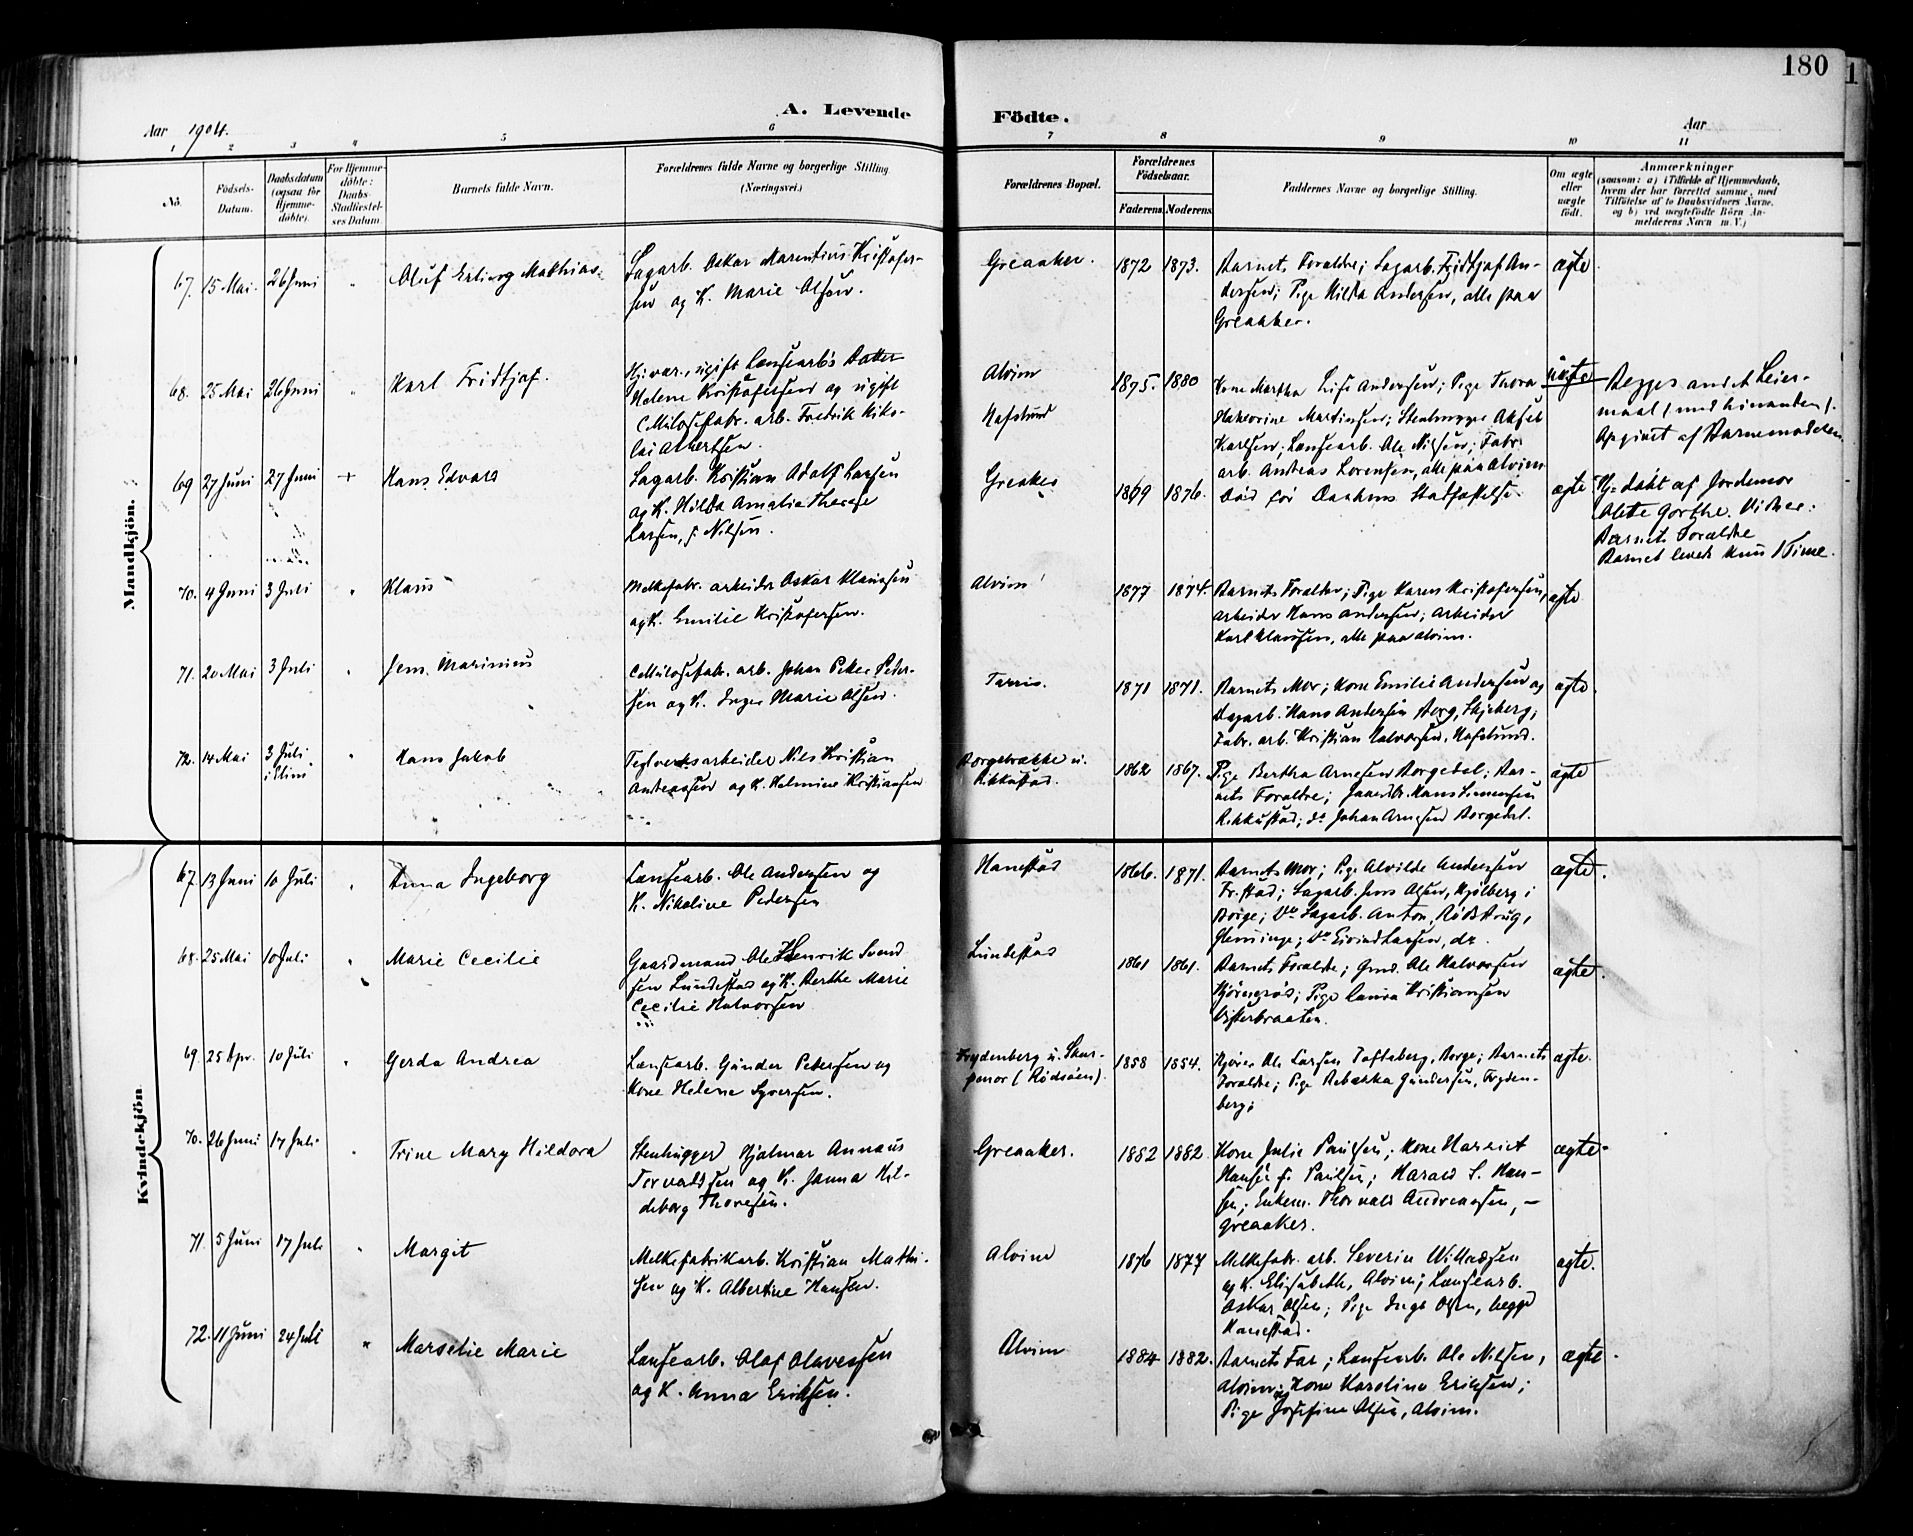 180
A. Levende
Födte.
Aar 1904.
Aar
1 2 3 4 5 6 7 8 9 10 11
No.
Födsels-Datum.
Daabsdatum (ogsaa for Hjemmedöbte).
For Hjemmedöbte: Daabs-Stadfæstelses Datum.
Barnets fulde Navn.
Forældrenes fulde Navne og borgerlige Stilling
(Næringsvei.)
Forældrenes Bopæl.
Forældrenes Födselsaar.
Faderens. Moderens.
Faddernes Navne og borgerlige Stilling.
Om ægte eller uægte födt.
Anmærkninger
(saasom: a) i Tilfælde af Hjemmedaab, hvem der har forrettet samme, med Tilföielse af to Daabsvidners Navne, og b) ved uægtefödte Börn Anmelderens Navn m. V.)
Mandkjön.
67. 15 Mai. 26 Juni " Oluf Erling Mathias.
Sagarb. Oskar Marentius Kristofer-
sen og K. Marie Olsen.
Greaaker. 1872 1873.
Barnets Forældre; Sagarb. Fridtjof An-
dersen; Pige Hilda Andersen, alle paa
Greaaker.
ægte
68. 25 Mai 26 Juni " Karl Fridtjof.
ugift Lænsearb's Datter
Helene Kristofersen og ugift
Cellulosefabr. arb. Fredrik Niko-
lai Albertsen.
Alvim
Hafslund
1875. 1880
Kone Martha Lise Andersen; Pige Thora
Martinsen; Stenhugger Aksel
Karlsen; Lænsearb. Ole Nilsen; Fabr.
arb. Andreas Lorensen, alle paa Alvim
uægte
Begges andet Leier-
maal (med hinanden).
Opgivet af Barnemoderen
69 27 Juni 27 Juni + Hans Edvard
Sagarb. Kristian Adolf Larsen
og K. Hilda Amalie Therese
Larsen, f. Nilsen.
Greaker 1869 1876.
Död för Daabens Stadfæstelse.
ægte
Hj. döbt af Jordemor
Barnets Forældre
Barnet levede kun 1 Time.
70. 4 Juni 3 Juli " Klaus
Melkefabr. arbeider Oskar Klausen
og K. Emilie Kristofersen.
Alvim 1877 1874.
Barnets Forældre; Pige Karen Kristofersen,
arbeider Hans Andersen; Arbeider
Karl Klausen, alle paa Alvim.
ægte
71. 20 Mai 3 Juli " Jens Marinius
Cellulosefabr. arb. Johan Peter Peder-
sen og K. Inger Marie Olsen.
Tarris. 1871 1871.
Barnets Mor; Kone Emilie Andersen og
Dagarb. Hans Andersen Berg, Skjeberg;
Fabr. arb. Kristian Halvorsen, Hafslund.
ægte
72. 14 Mai 3 Juli " Hans Jakob
Teglverksarbeider Nils Kristian
Andreassen og K. Helmine Kristiansen
1862 1867.
Pige Bertha Arnesen Borgedal; Bar-
nets Forældre; Hans Simensen
Rikkustad; do Johan Arnesen Borgedal.
ægte
Kvindekjön
67. 13 Juni 10 Juli " Anna Ingeborg
Lænsearb. Ole Andersen og
K. Nikoline Pedersen
Hanestad 1866. 1871.
Barnets Mor; Pige Alvilde Andersen
Fr.stad; Sagarb. Jens Olsen, Kjölberg i
Borge; do Sagarb. Anton,
Glemminge; do Eivind Larsen, do.
ægte.
68. 25 Mai 10 Juli " Marie Cecilie
Gaardmand Ole Henrik Svend
sen Lundestad og K. Berthe Marie
Cecilie Halvorsen
Lundestad 1861 1861.
Barnets Forældre; Gmd. Ole Halvorsen
Pige Laura Kristiansen
Visterbraaten.
ægte.
69. 25 Apr. 10 Juli " Gerda Andrea
Lænsearb. Gunder Petersen og
Kone Helene Syversen.
Frydenberg u. Skar-
penor (Rödsöen).
1858 1854.
Ole Larsen Tofteberg, Borge; Barnets
Forældre; Pige Rebekka Gundersen, Fryden-
berg;
ægte.
70. 26 Juni 17 Juli " Trine Mary Hildora
Stenhugger Hjalmar Annæus
Torvaldsen og K. Janna Hil-
deborg Thoresen.
Greaaker. 1882 1882
Kone Julie Paulsen; Kone Harriet
Hansen f. Paulsen; Harald S. Han-
sen; Enkem. Thorvald Andreassen, —
Greaaker.
ægte
71. 5 Juni 17 Juli " Margit
Melkefabrikarb. Kristian Mathi-
sen og K. Albertine Hansen.
Alvim 1876 1877
Melkefabr. arb. Severin Willadsen
og K. Elisabeth, Alvim; Lænsearb.
Oskar Olsen; Pige Inga Olsen, begge
Hanestad.
ægte.
72. 11 Juni 24 Juli " Marselie Marie
Lænsearb. Olaf Olavessen
og K. Anna Eriksen.
Alvim 1884 1882.
Barnets Far; Lænsearb. Ole Nilsen,
Alvim; Kone Karoline Eriksen;
Pige Josefine Olsen, Alvim.
ægte.